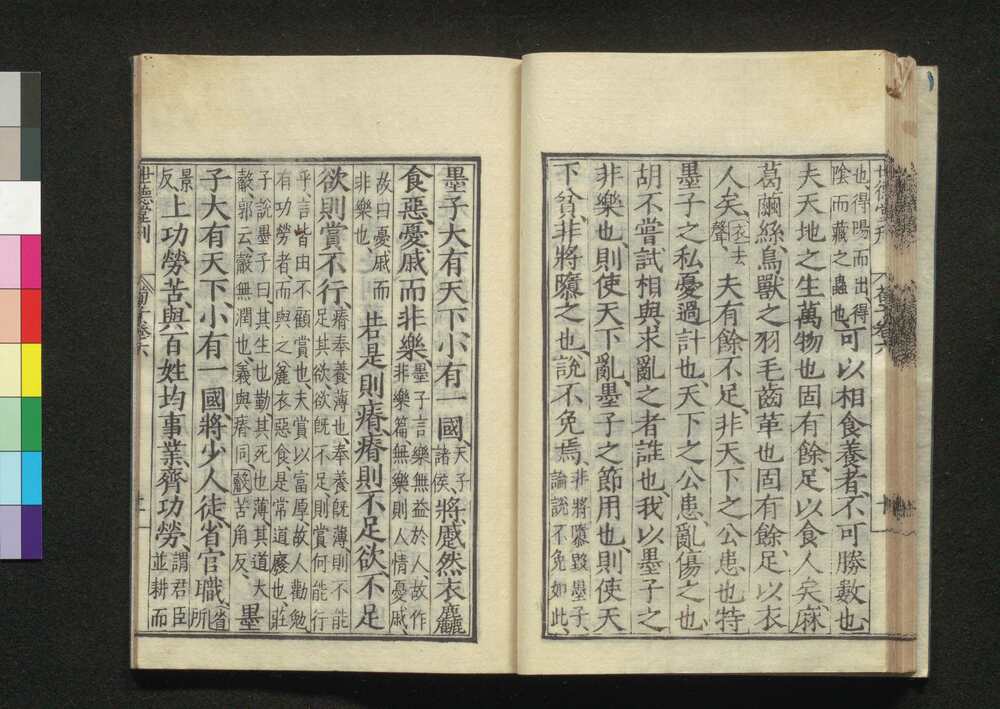 也得陽而出得
陰而藏之蟲也可以相食養者不可勝數也
夫天地之生萬物也固有餘足以食人矣麻
葛繭絲鳥獸之羽毛齒革也固有餘足以衣
人矣衣去聲夫有餘不足非天下之公患也特
墨子之私憂過計也天下之公患亂傷之也
胡不嘗試相與求亂之者誰也我以墨子之
非樂也則使天下亂墨子之節用也則使天
下貧非將隳之也說不免焉非將隳毀墨子論說不免如此
墨子大有天下小有一國天子諸侯將蹙然衣麤
食惡憂戚而非樂墨子言樂無益於人故作非樂篇無樂則人情憂戚
故曰憂戚而非樂也若是則瘠瘠則不足欲不足
欲則賞不行瘠奉養薄也奉養旣薄則不能足其欲欲旣不足則賞何能行
乎言皆由不顧賞也夫賞以富厚故人勸勉有功勞者而與之麤衣惡食是常道廢也莊
子說墨子曰其生也勤其死也薄其道大觳郭云觳無潤也義與瘠同觳苦角反墨
子大有天下小有一國將少人徒省官職省所
景反上功勞苦與百姓均事業齊功勞謂君臣並耕而
世德堂刊
荀子卷六